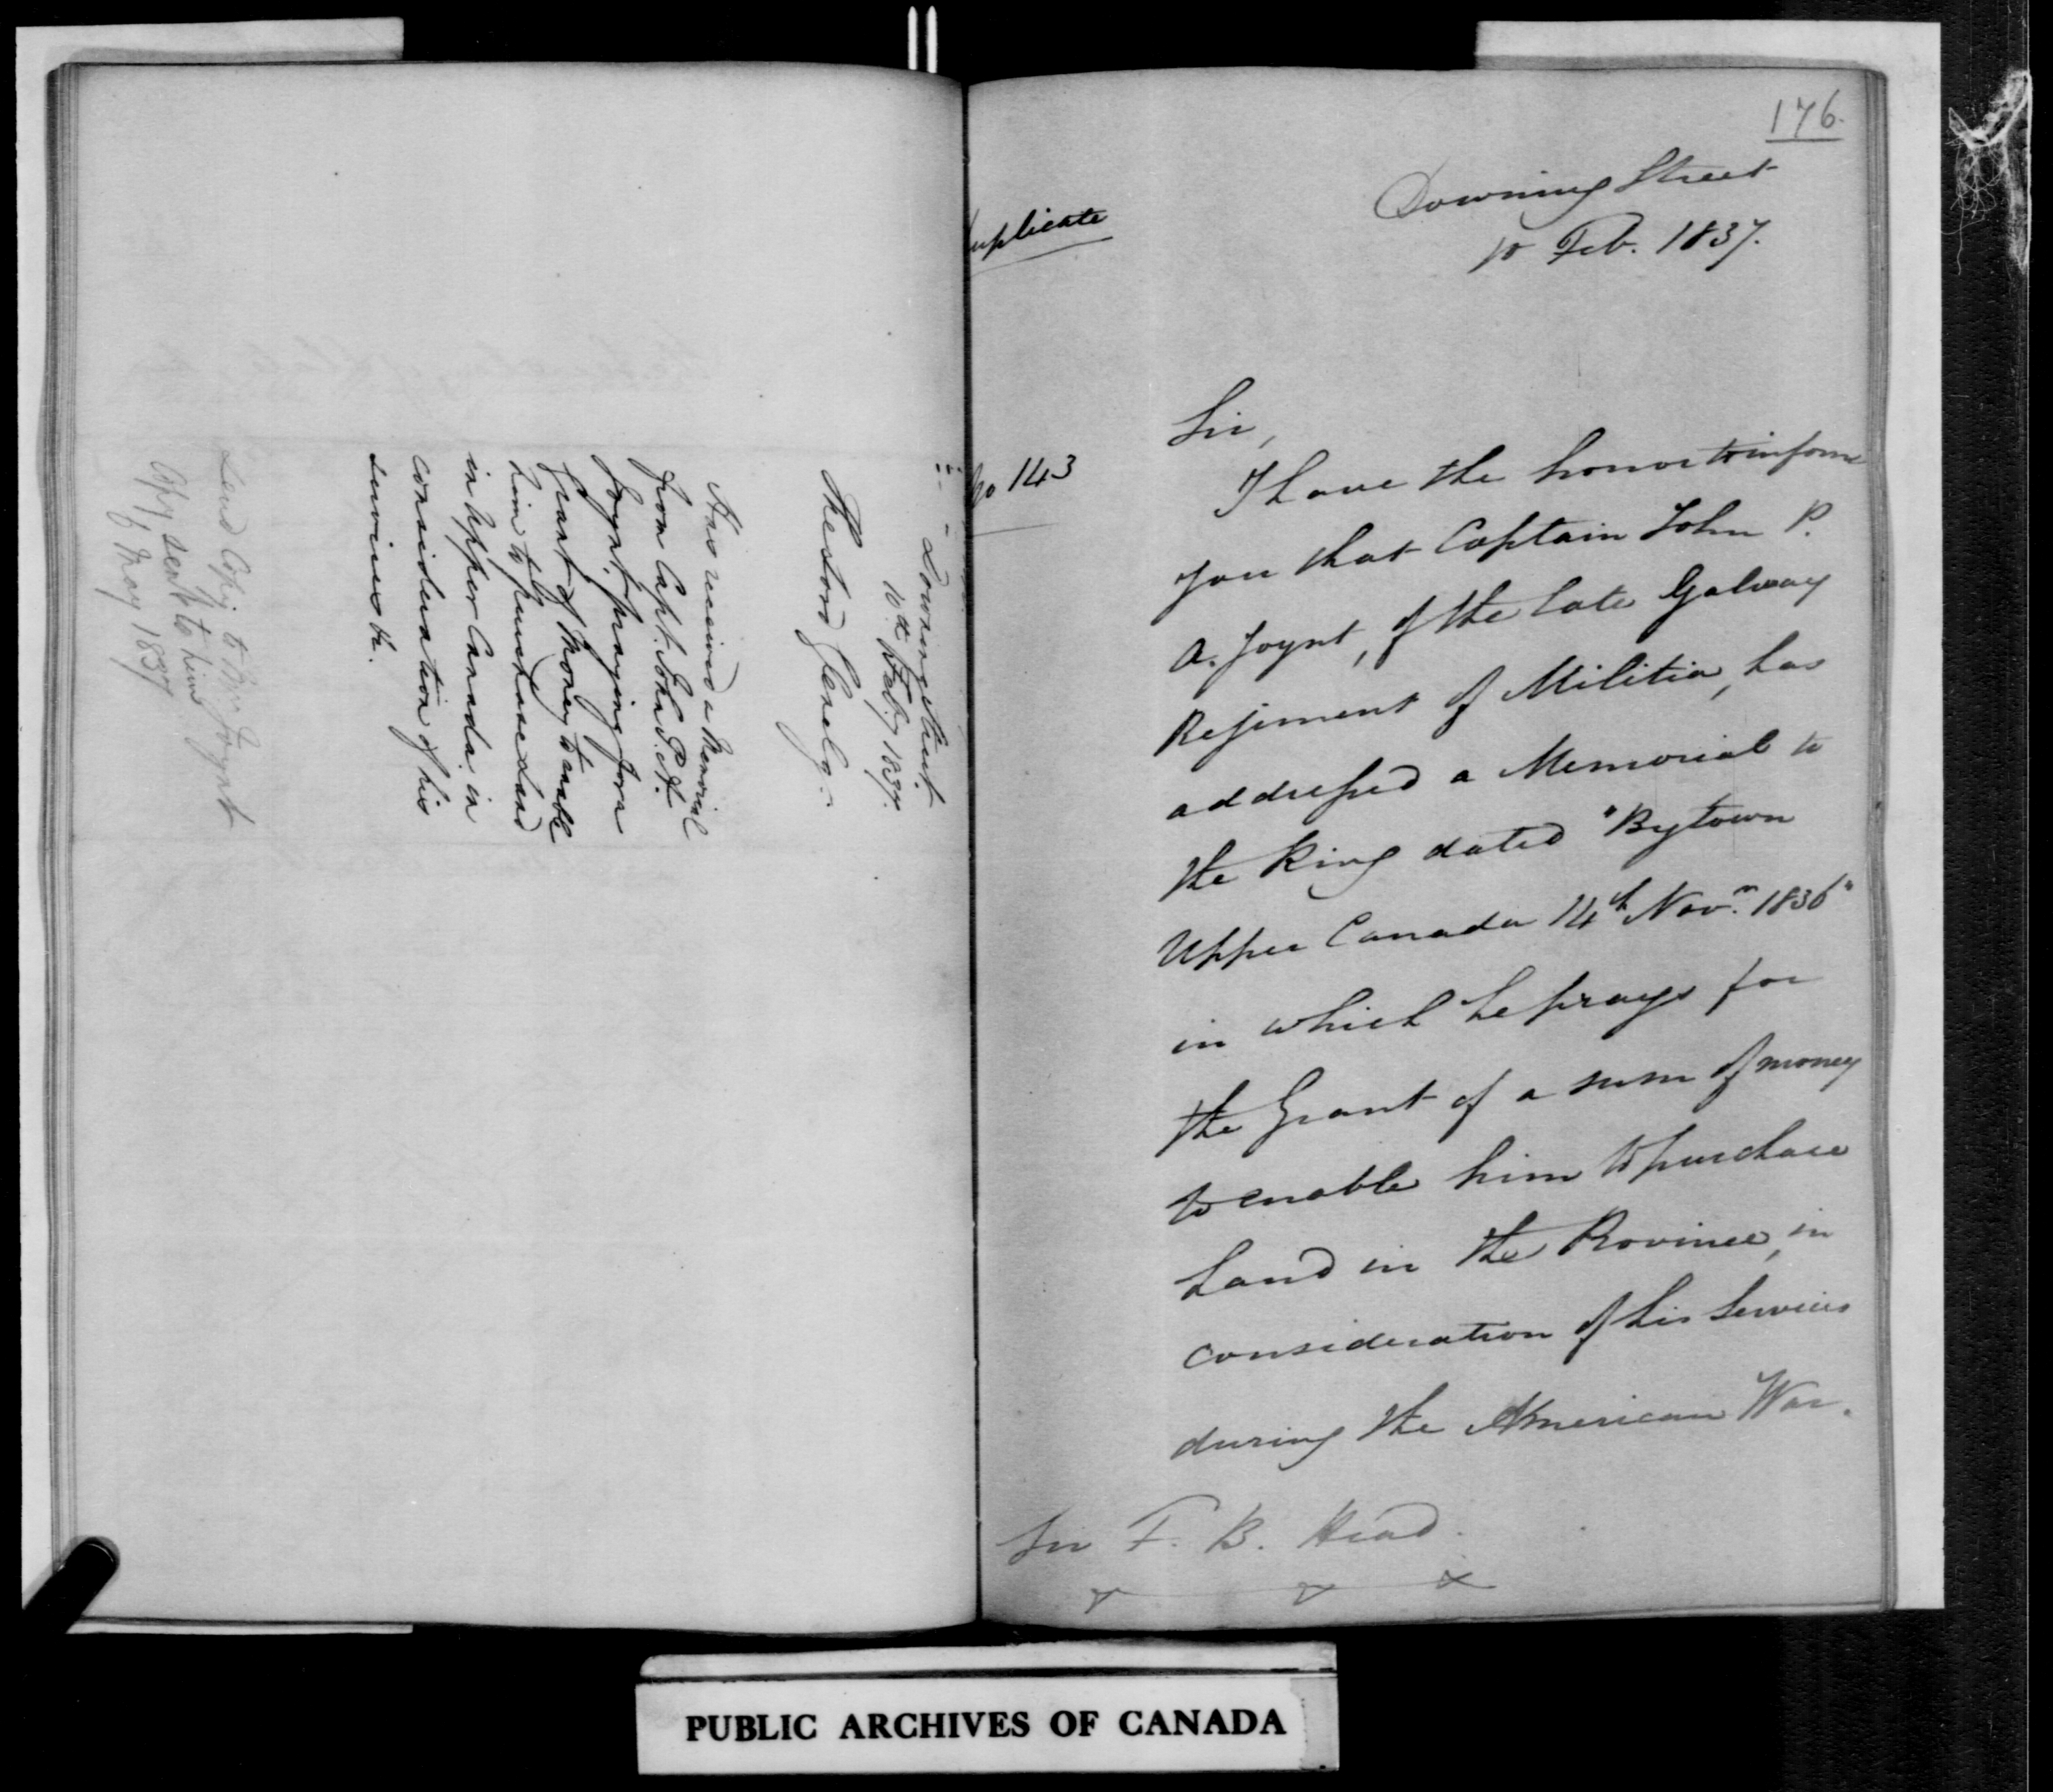 Downing Street
10th Feb.y 1837.
The Lord Glenelg.
Has received a Memorial
from Capt. John P. A.
Joynt. praying for a
grant of money to enable
him to purchase land
in Upper Canada in
consideration of his
services &c.
Send Copy to Mr Joynt
Copy sent to him
6 May 1837
176.
Duplicate
Downing Street
10 Feb. 1837.
No 143
Sir,
I have the honor to inform
you that Captain John P.
A. Joynt, of the late Galway
Regiment of Militia, has
addressed a Memorial to
the King dated "Bytown
Upper Canada 14th Novr. 1836"
in which he prays for
the Grant of a sum of money
to enable him to purchase
Land in the Province, in
consideration of his Services
during the American War.
Sir F. B. Head.
PUBLIC ARCHIVES OF CANADA